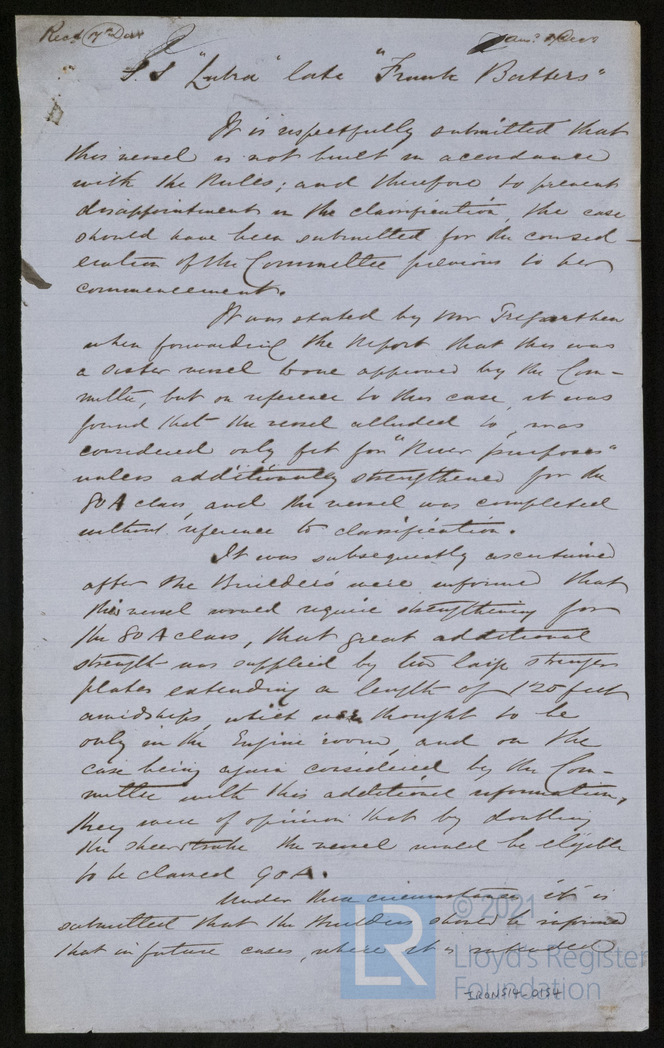 Recd 17th Decr
Ansd 17 Decr
S.S "Lubra" late "Frank Batters"
It is respectfully submitted that
this vessel is not built in accordance
with the Rules; and therefore to prevent
disappointment in the classification, the case
should have been submitted for the consid-
eration of the Committee previous to her
commencement.
It was stated by Mr Tregarthen
when forwarding the Report that this was
a sister vessel to one approved by the Com-
mittee, but on reference to this case, it was
found that the vessel alluded to, was
considered only fit for "River purposes"
unless additionally strengthened for the
80A class, and the vessel was completed
without reference to classification.
It was subsequently ascertained
after the Builders were informed that
this vessel would require strengthening for
the 80A class, that great additional
strength was supplied by two large stringer
plates extending a length of 120 feet
amidships, which were thought to be
only in the Engine room, and on the
case being again considered by the Com-
mittee with this additional information,
they were of opinion that by doubling
the sheerstrake the vessel would be eligible
to be classed 90A.
Under these circumstances it is
submitted that the Builders should be informed
that in future cases, where it is intended
© 2021
LR
Lloyd's Register
Foundation
IRON514-0154